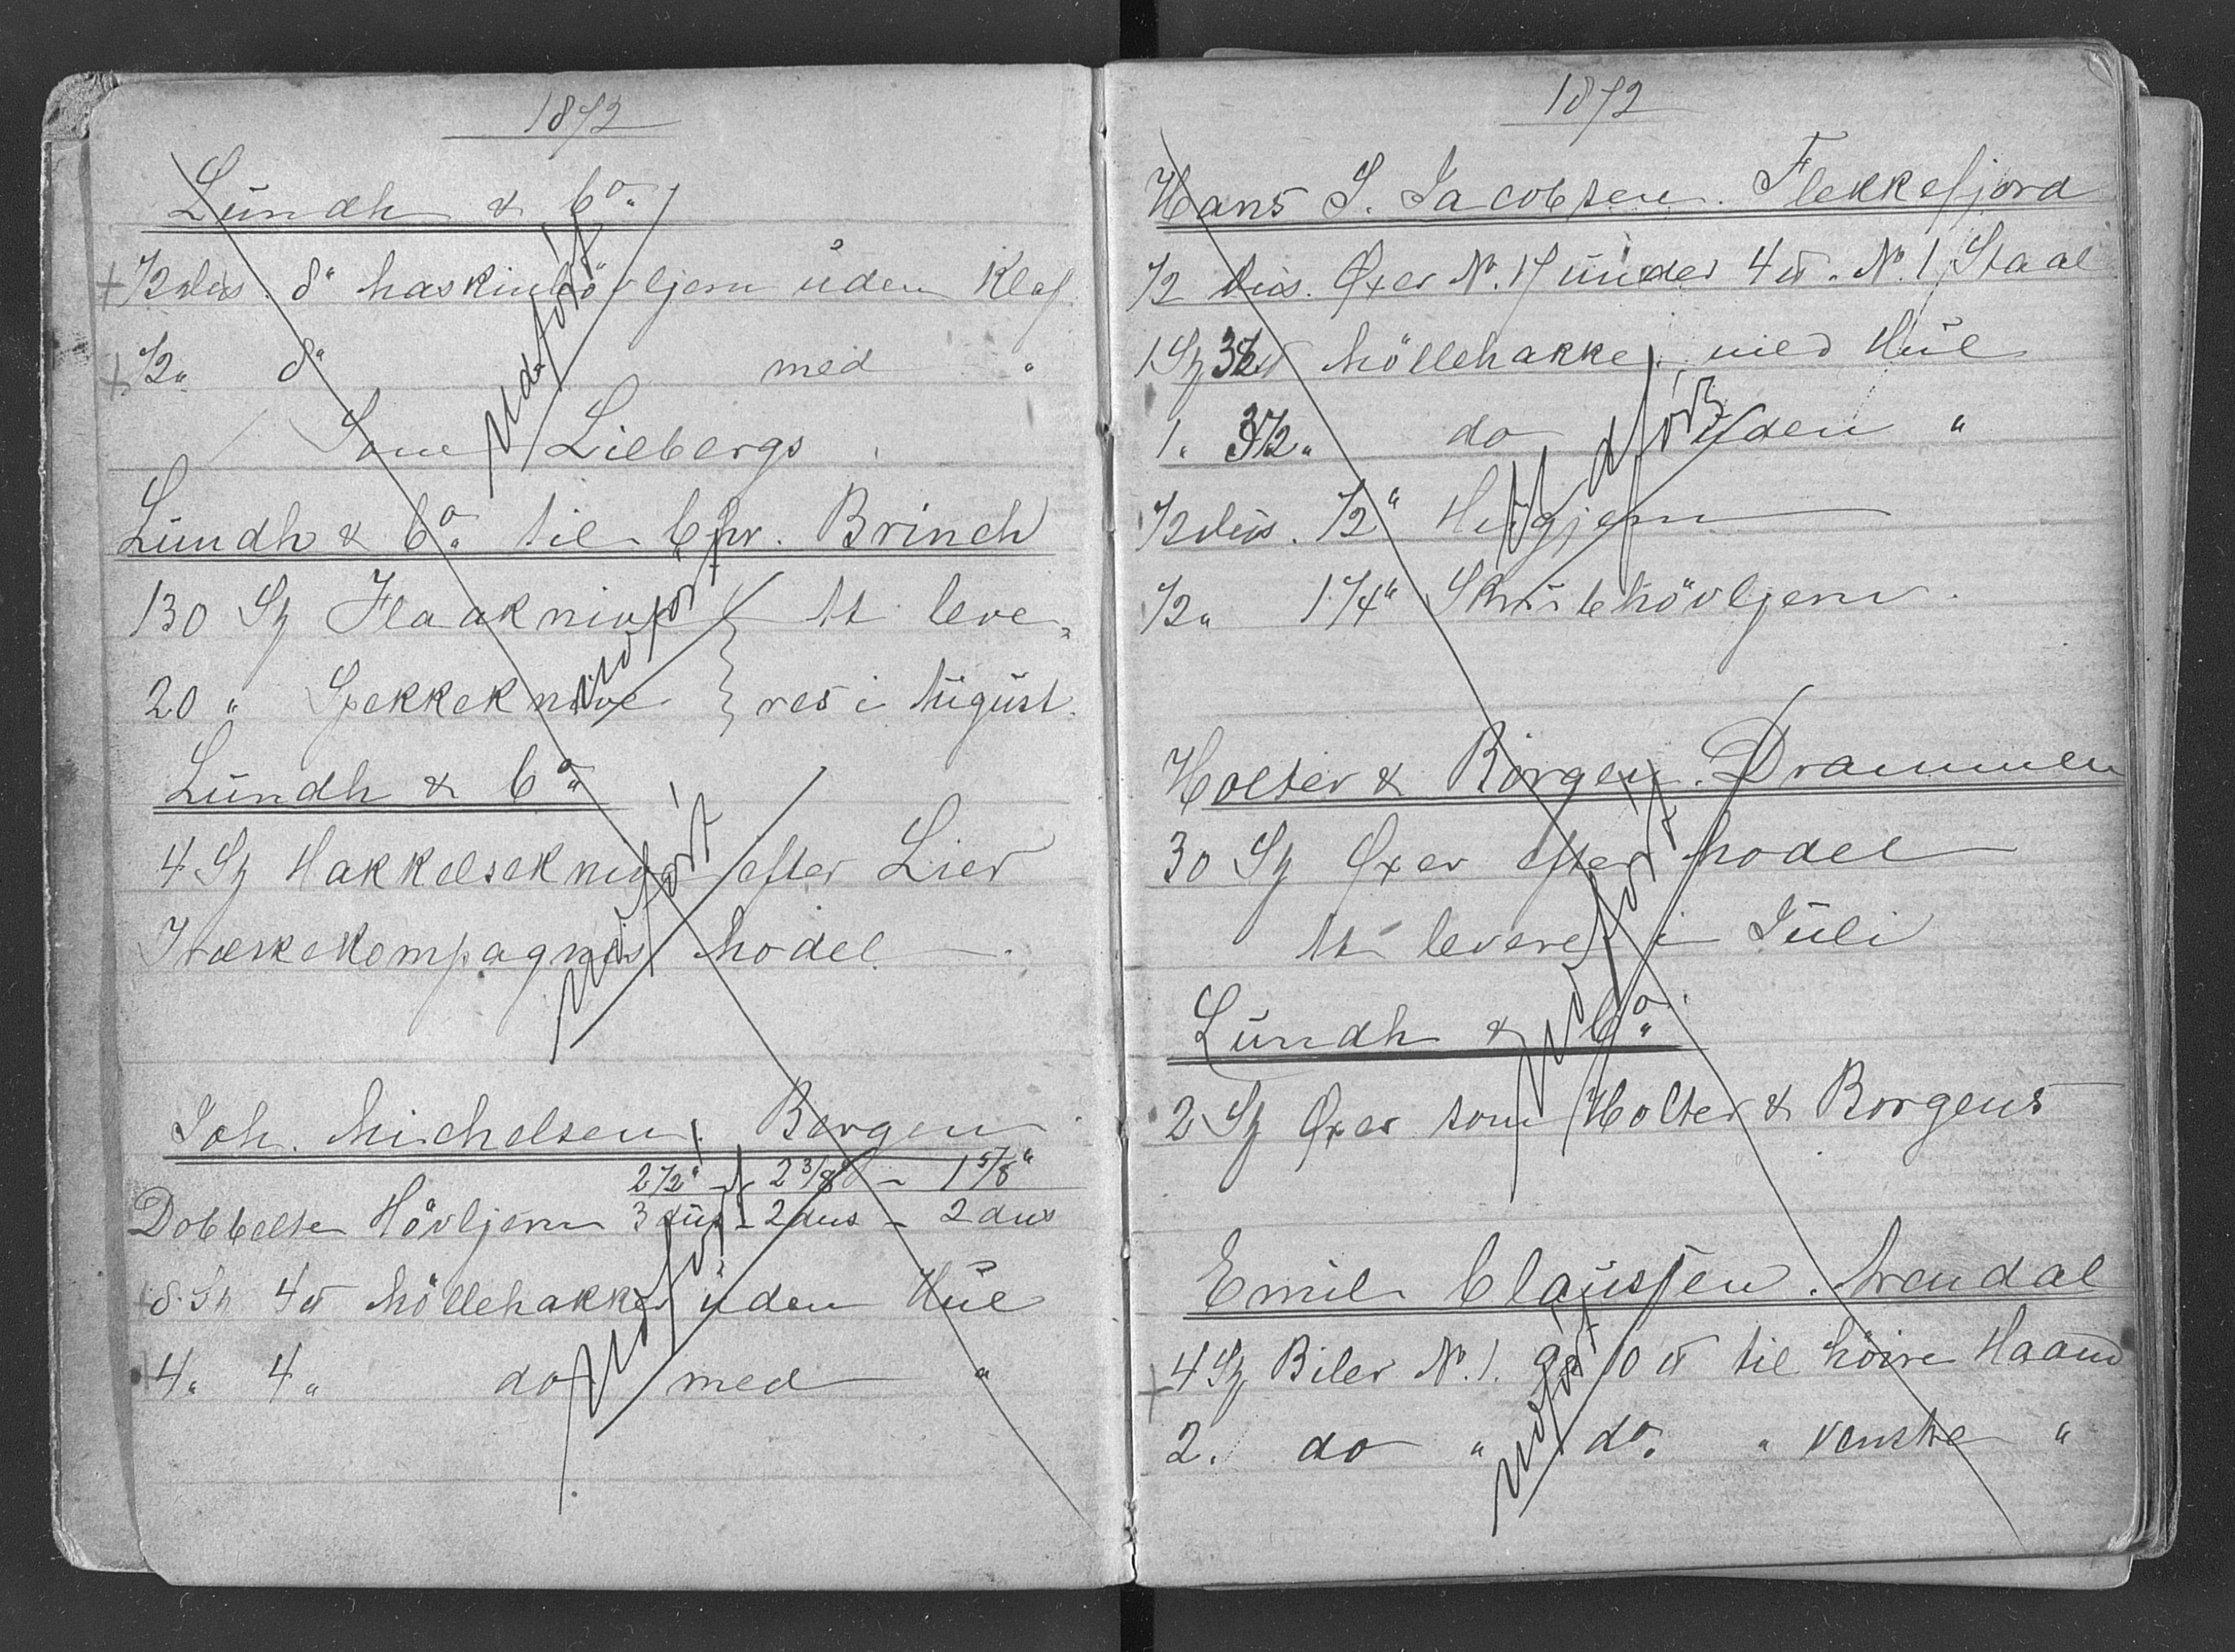 1872
Lundh & Co.
½ dus. 8" Maskinhövljern uden Klaf
½ „ 8" med "
Som Liebergs
udfört
Lundh & Co. til Chr. Brinch
130 St Flaaknive } at leve„
20 " Spekkeknive } res i August.
udfört
Lundh & Co.
4 St Hakkelseknive efter Lier
Træskekompagnis Model
udfört
Joh. Michelsen. Bergen
2½" – 2 3/8" – 1 5/8"
Dobbelte Hövljern 3 dus – 2 dus – 2 dus
8 St 4 ℔ Möllehakker uden Hul
4 „ 4 „ do med "
udfört
1872
Hans J. Jacobsen. Flekkefjord
½ Dus. Øxer No. 17 under 4 ℔. No. 1 Staal
1 St 3½ ℔ Möllehakke med Hul
1 „ 3½ „ do uden "
½ dus. ½" Hugjern
½ „ 1¼" Skrubhövljern
udfört
Holter & Borgen. Drammen
30 St Øxer efter Model
at leveres i Juli
Lundh & Co.
2 St Øxer som Holter & Borgens
udfört
Emil Claussen. Arendal
4 St Biler No. 1. 9 10 ℔ til höire Haand
2. do " do. " venstre "
udfört